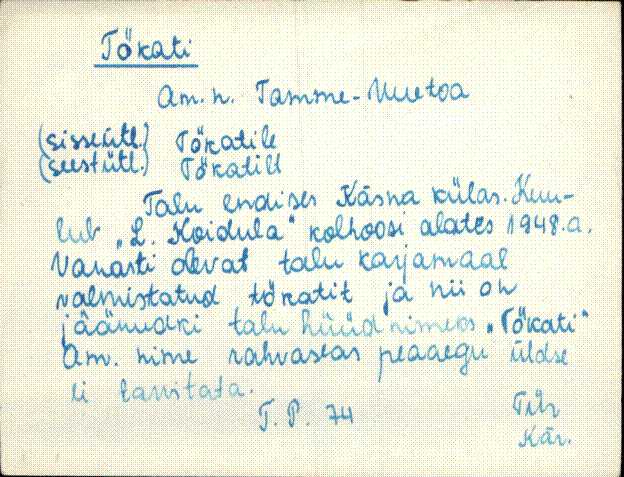 Tõkati
Am. n. Tamme-Uuetoa
(sisseütl.) Tõkatile
(seestütl.) Tõkatilt
Talu endises Käsna külas. Kuu-
lub „L. Koidula" kolhoosi alates 1948.a.
Vanasti olevat talu karjamaal
valmistatud tõkatit ja nii on
jäänudki talu hüüdnimeks „Tõkati"
Am. nime rahvaseas peaaegu üldse
ei tarvitata.
T. P. 74
Tür
Kär.